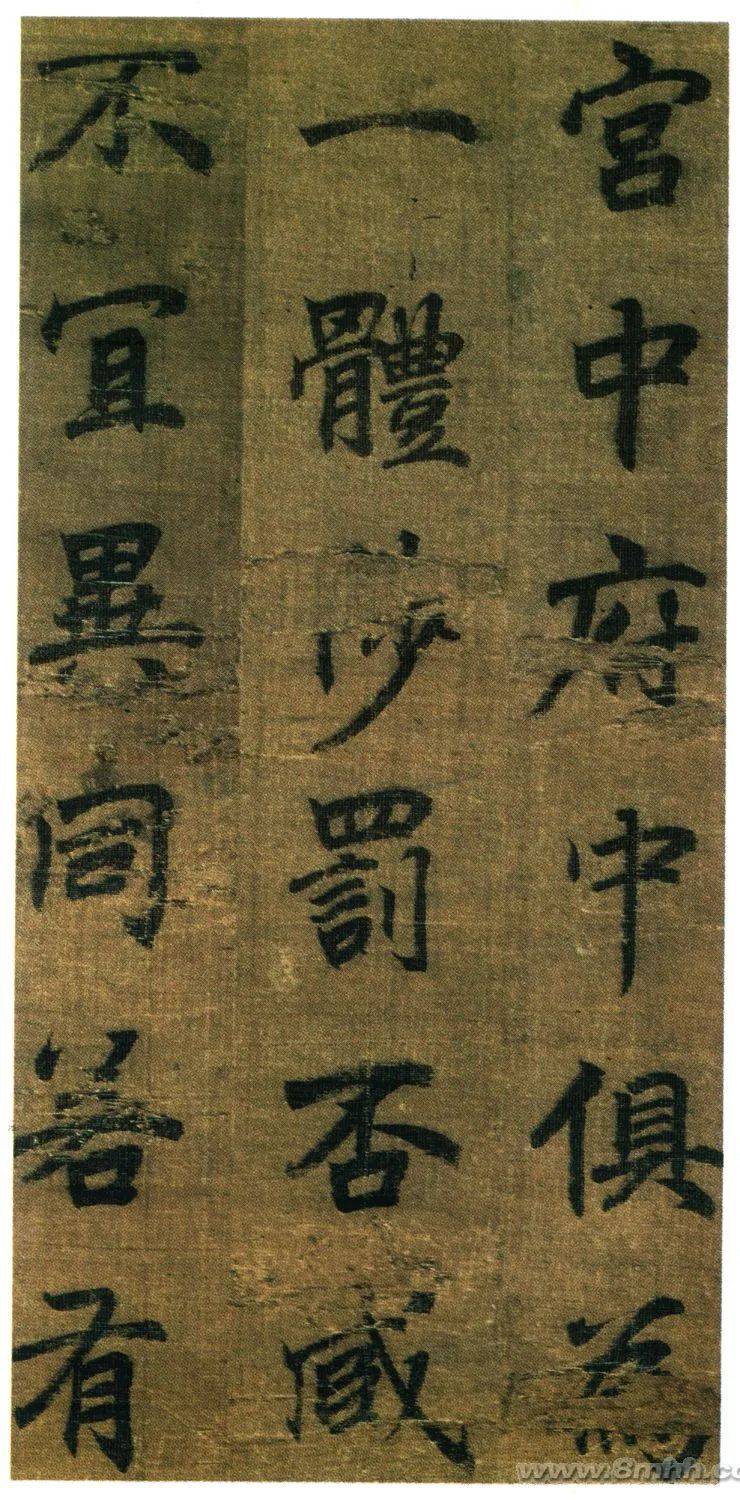 宮中府中俱為
一體陟罰否臧
不冝異同若有
www.8mhh.co